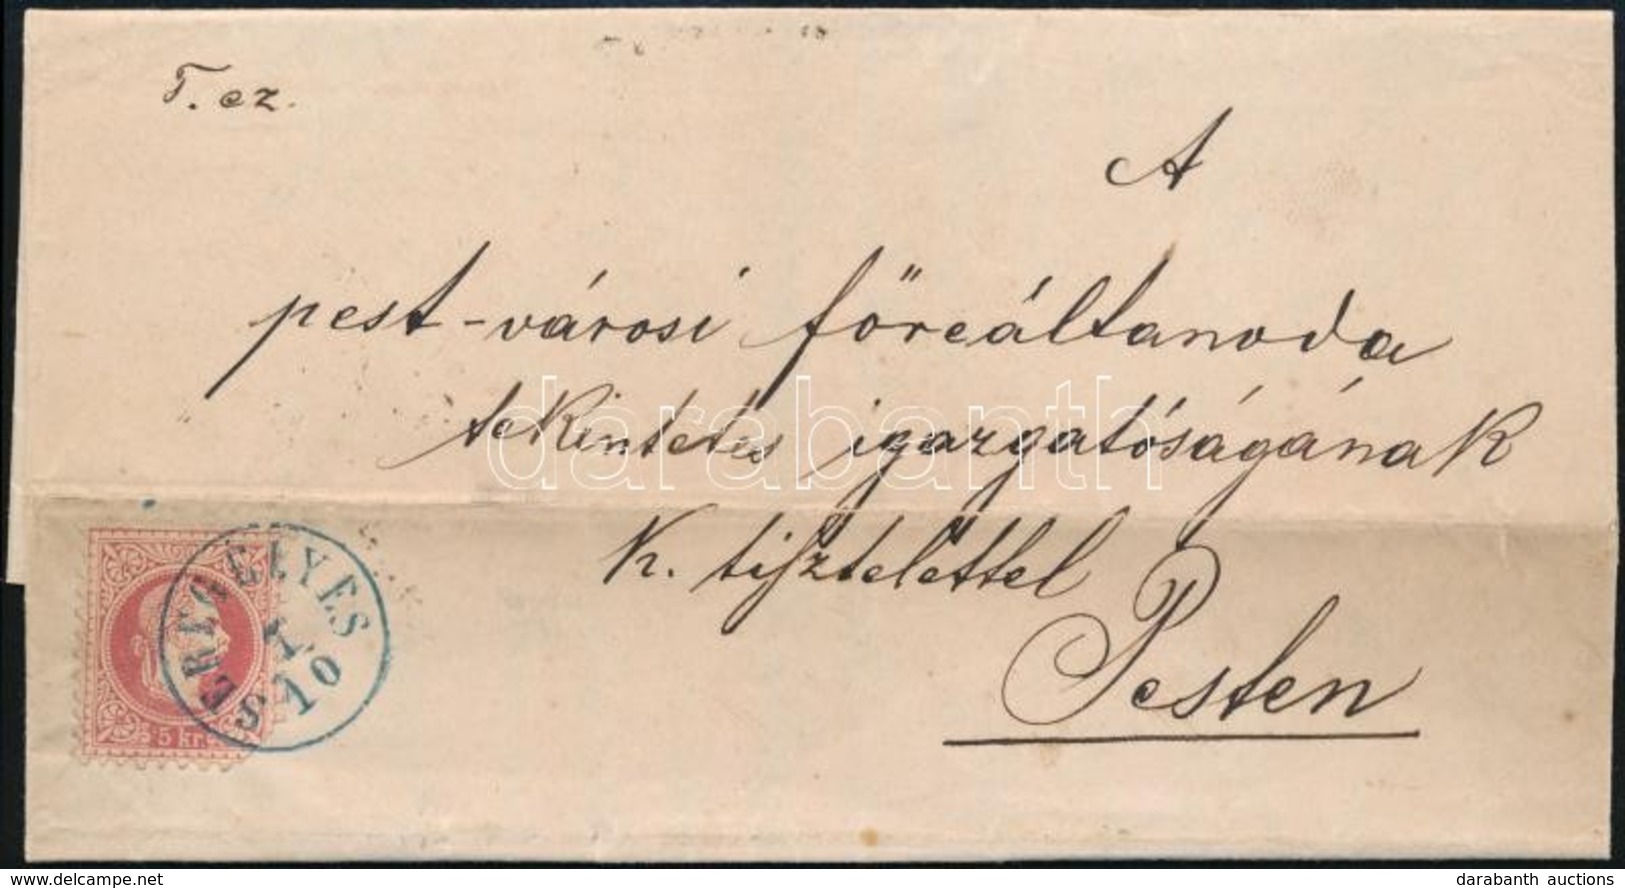 T. cz.
A
pest-városi főreáltanoda
tekintetes igazgatóságának
K. tisztelettel
Pesten
ERCSI
5 kr.
darabanth
www.delcampe.net
darabanth auctions